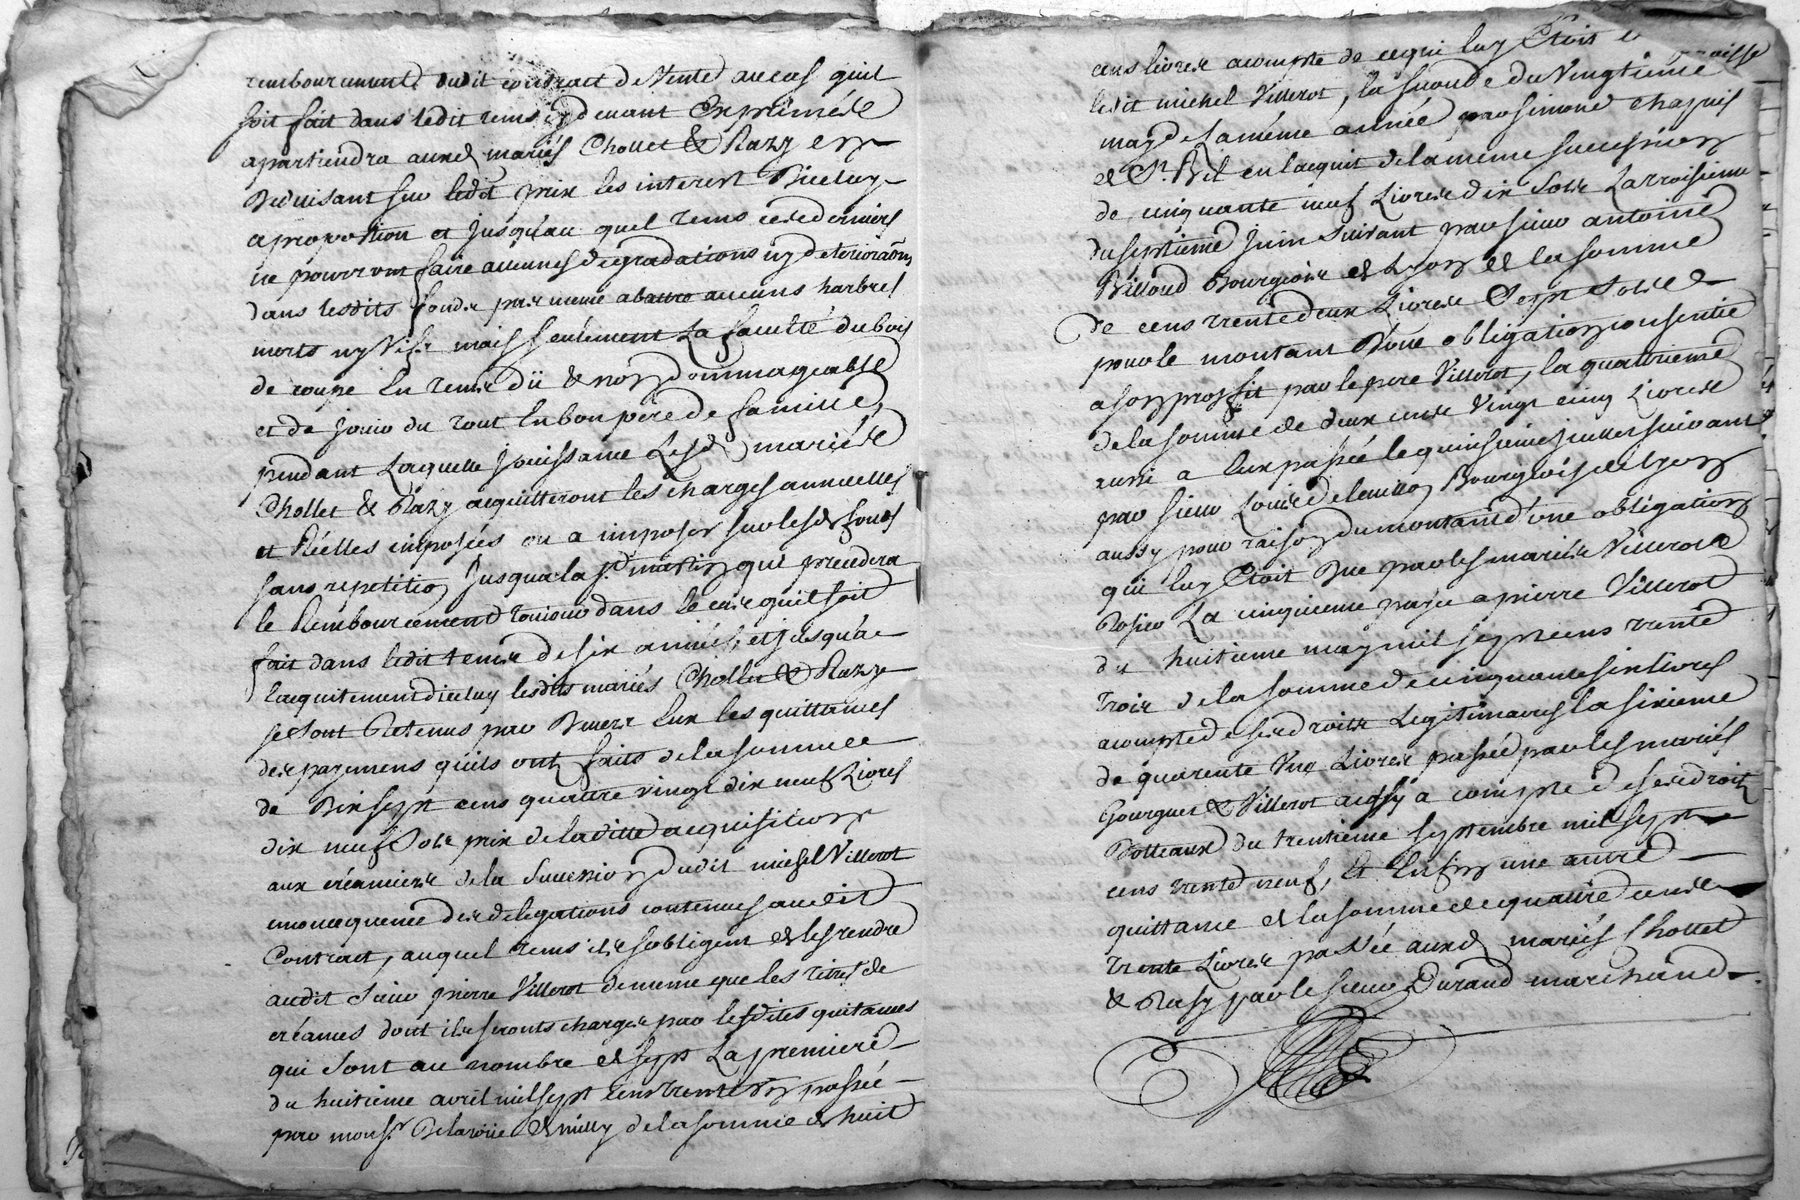 rembourcement dudit contract de Vente au cas quil
soit fait dans ledit tems cy devant Exprimée
apartiendra auxd mariés Chollet & Razy en
Deduisant sur ledit prix les interest Diceluy
a proportion et jusqu'au quel tems ces derniers
ne pourront faire aucunes degradations ny deteriora͠ons
dans lesdits fonds pas meme abattre aucuns harbres
morts ny Vifs mais seulement La faculté du bois
de coupe En tems dü & non dommageable
et de jouir du tout En bon pere de famille,
pendant Laquelle jouissance Lesd mariés
Chollet & Razy acquitteront les charges annuelles
et Réelles imposées ou a imposer sur lesd fonds
sans repetition jusqua la st martin qui precedera
le Rembourcement toujour dans le cas quil soit
fait dans ledit tems de six années et jusqu'a
lacquitement diceluy lesdits mariés Chollet & Razy
se sont Retenus par Devers Eux les quittances
des payemens quils ont faits de la somme
de Dix sept cens quattre vingt dix neuf Livres
dix neuf Sols prix de laditte acquisition
aux créanciers de la Succession dudit michel Villerot
en consequence des delegations contenues audit
Contract, auquel tems ils s'obligent de les rendre
audit Sieur pierre Villerot de meme que les titres de
créances dont ils seronts chargés par lesdites quitances
qui sont au nombre de sept La premiere
du huitieme avril mil sept cens trente un passée
par mons.r Delaroüe de milly de la somme de huit
cens livres a compte de ce qui luy Etoit
ledit michel Villerot, la seconde du Vingtieme
may de la même année par simond chapuis
de St. Bel en lacquit de la meme succession
de cinquante neuf Livres dix Sols La troisieme
du septieme juin suivant par sieur antoine
Billoud Bourgeois de Lyon de la somme
de cens trente deux Livres Sept Sols
pour le montant D'une obligation consentie
a son proffit par le pere Villerot, la quatrieme
de la somme de deux cens Vingt cinq Livres
aussi a Eux passée le quinsieme juillet suivant
par sieur Louis Bourgeois de Lyon
aussy pour raison du montant d'une obligation
qui luy Etoit Due par les mariés Villerot &
Rosier La cinquieme passée a pierre Villerot
du huitieme may mil sept cens trente
trois de la somme de cinquante six livres
a compte de ses droits Legitimaires la sixieme
de quarente une Livres passée par les mariés
Gourguet & Villerot aussy a compte de ses droits
Dotteaux du trentieme septembre mil sept
cens trente neuf, Et Enfin une autre
quittance de la somme de quattre cens
trente Livres passée auxd mariés Chollet
& Rasy par le sieur Durand marchand